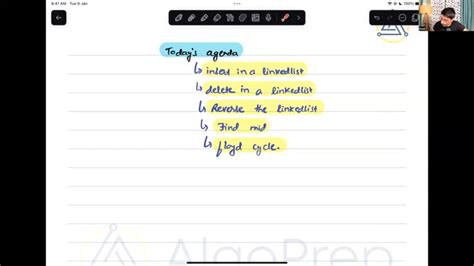 9:41 AM Tue 9 Jan
Today's agenda
↳ insert in a linkedlist
↳ delete in a linkedlist
↳ Reverse the linkedlist
↳ Find mid
↳ floyd cycle.
AlgoPrep